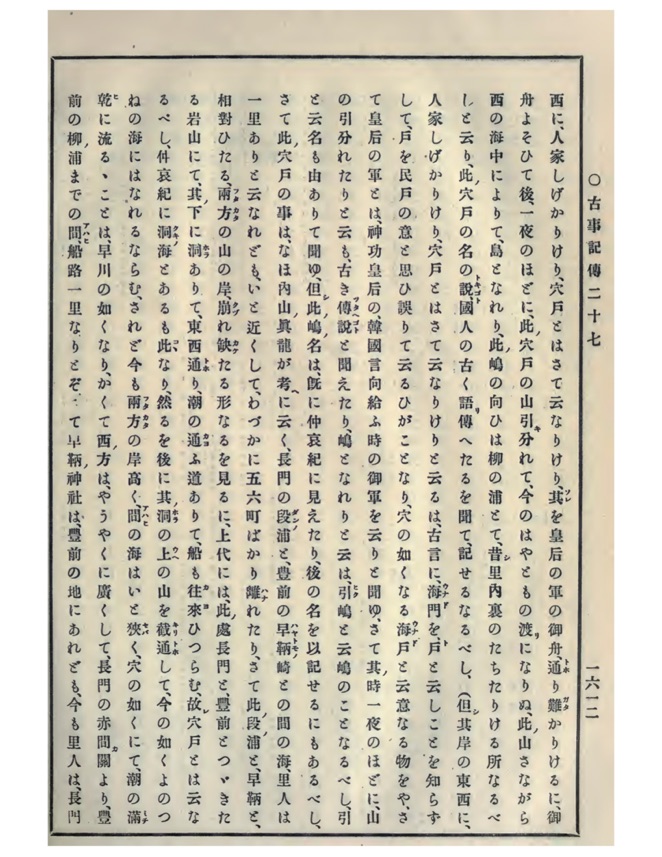 ○古事記傳二十七
一六一二
西に、人家しげかりけり、穴戸とはさて云なりけり、其を皇后の軍の御舟、通り難かりけるに、御
舟よそひて後、一夜のほどに、此穴戸の山引分れて、今のはやともの渡になりぬ、此山さながら
西の海中によりて、島となれり、此嶋の向ひは柳の浦とて、昔里内裏のたちたりける所なるべ
しと云り、此穴戸の名の說、國人の古く語傳へたるを聞て、記せるなるべし、(但其岸の東西に、
人家しげかりけり、穴戸とはさて云なりけりと云るは、古言に、海門を、戸と云しことを知らず
して、戸を民戸の意と思ひ誤りて云るひがことなり、穴の如くなる海戸と云意なる物をや、さ
て皇后の軍とは、神功皇后の、韓國言向給ふ時の御軍を云りと聞ゆ、さて其時一夜のほどに、山
の引分れたりと云も、古き傳說と聞えたり、嶋となれりと云は、引嶋と云嶋のことなるべし、引
と云名も由ありて聞ゆ、但し此嶋名は、旣に仲哀紀に見えたり、後の名を以記せるにもあるべし、
さて此穴戸の事は、なほ內山眞龍が考に云く、長門の段浦と、豊前の早鞆崎との間の海、里人は
一里ありと云なれども、いと近くして、わづかに五六町ばかり離れたり、さて此段浦と、早鞆と、
相對ひたる、兩方の山の岸、崩れ缺たる形なるを見るに、上代には、此處長門と、豊前とつゞきた
る岩山にて、其下に洞ありて、東西通り、潮の通ふ道ありて、船も往來ひつらむ、故穴戸とは云な
るべし、仲哀紀に洞海とあるも此なり、然るを後に其洞の上の山を截通して、今の如くよのつ
ねの海にはなれるならむ、されど今も兩方の岸高く、間の海はいと狹く、穴の如くにて、潮の滿
乾に流るゝことは、早川の如くなり、かくて西方は、やうやくに廣くして、長門の赤間關より、豊
前の柳浦までの間、船路一里なりとぞ、さて早鞆神社は、豊前の地にあれども、今も里人は、長門